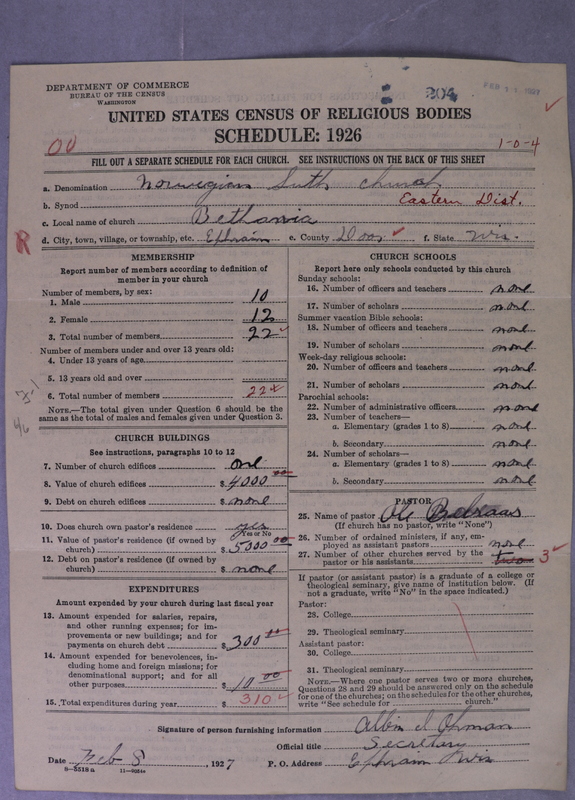 DEPARTMENT OF COMMERCE
BUREAU OF THE CENSUS
WASHINGTON
204
FEB 11 1927
UNITED STATES CENSUS OF RELIGIOUS BODIES
SCHEDULE: 1926
1-0-4
FILL OUT A SEPARATE SCHEDULE FOR EACH CHURCH. SEE INSTRUCTIONS ON THE BACK OF THIS SHEET
a. Denomination Norwegian Luth church
b. Synod Eastern Dist.
c. Local name of church Bethania
R d. City, town, village, or township, etc. Ephraim e. County Door f. State Wis.
MEMBERSHIP
Report number of members according to definition of member in your church
Number of members, by sex:
1. Male 10
2. Female 12
3. Total number of members 22
Number of members under and over 13 years old:
4. Under 13 years of age
5. 13 years old and over
6. Total number of members 22
NOTE.—The total given under Question 6 should be
the same as the total of males and females given under Question 3.
CHURCH BUILDINGS
See instructions, paragraphs 10 to 12
7. Number of church edifices one
8. Value of church edifices $ 4000 00
9. Debt on church edifices $ none
10. Does church own pastor's residence yes
Yes or No
11. Value of pastor's residence (if owned by
church) $ 5000 00
12. Debt on pastor's residence (if owned by
church) $ none
EXPENDITURES
Amount expended by your church during last fiscal year
13. Amount expended for salaries, repairs,
and other running expenses; for im-
provements or new buildings; and for
payments on church debt $ 300 00
14. Amount expended for benevolences, in-
cluding home and foreign missions; for
denominational support; and for all
other purposes $ 10 00
15. Total expenditures during year $ 310
CHURCH SCHOOLS
Report here only schools conducted by this church
Sunday schools:
16. Number of officers and teachers none
17. Number of scholars none
Summer vacation Bible schools:
18. Number of officers and teachers none
19. Number of scholars none
Week-day religious schools:
20. Number of officers and teachers none
21. Number of scholars none
Parochial schools:
22. Number of administrative officers none
23. Number of teachers—
a. Elementary (grades 1 to 8) none
b. Secondary none
24. Number of scholars—
a. Elementary (grades 1 to 8) none
b. Secondary none
PASTOR
25. Name of pastor Ole
(If church has no pastor, write "None")
26. Number of ordained ministers, if any, em-
ployed as assistant pastors none
27. Number of other churches served by the
pastor or his assistants two 3
If pastor (or assistant pastor) is a graduate of a college or
theological seminary, give name of institution below. (If
not a graduate, write "No" in the space indicated.)
Pastor:
28. College
29. Theological seminary
Assistant pastor:
30. College
31. Theological seminary
NOTE.—Where one pastor serves two or more churches,
Questions 28 and 29 should be answered only on the schedule
for one of the churches; on the schedules for the other churches,
write "See schedule for church."
Signature of person furnishing information Albin I Ohman
Official title Secretary
Date Feb 8, 1927 P. O. Address Ephraim Wis